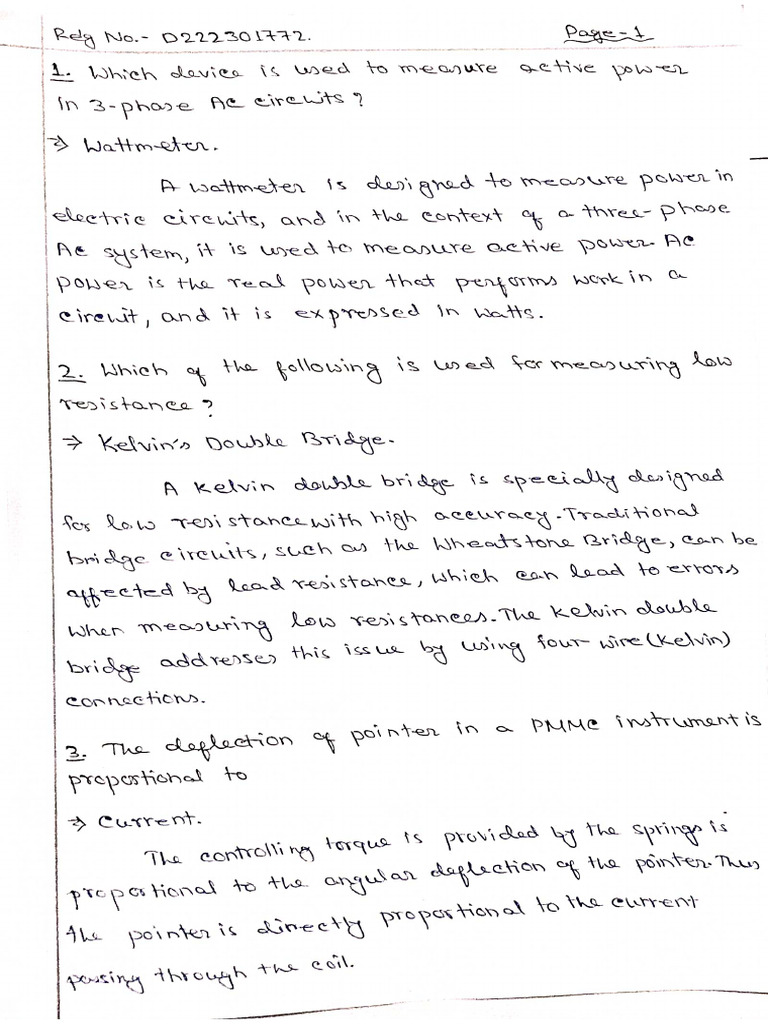 Redg No.- D222301772. Page-1
1. Which device is used to measure active power
in 3-phase AC circuits?
⇒ Wattmeter.
A wattmeter is designed to measure power in
electric circuits, and in the context of a three-phase
AC system, it is used to measure active power. AC
power is the real power that performs work in a
circuit, and it is expressed in watts.
2. Which of the following is used for measuring low
resistance?
⇒ Kelvin's Double Bridge.
A Kelvin double bridge is specially designed
for low resistance with high accuracy. Traditional
bridge circuits, such as the Wheatstone Bridge, can be
affected by lead resistance, which can lead to errors
when measuring low resistances. The Kelvin double
bridge addresses this issue by using four-wire (Kelvin)
connections.
3. The deflection of pointer in a PMMC instrument is
proportional to
⇒ Current.
The controlling torque is provided by the springs is
proportional to the angular deflection of the pointer. Thus
the pointer is directly proportional to the current
passing through the coil.